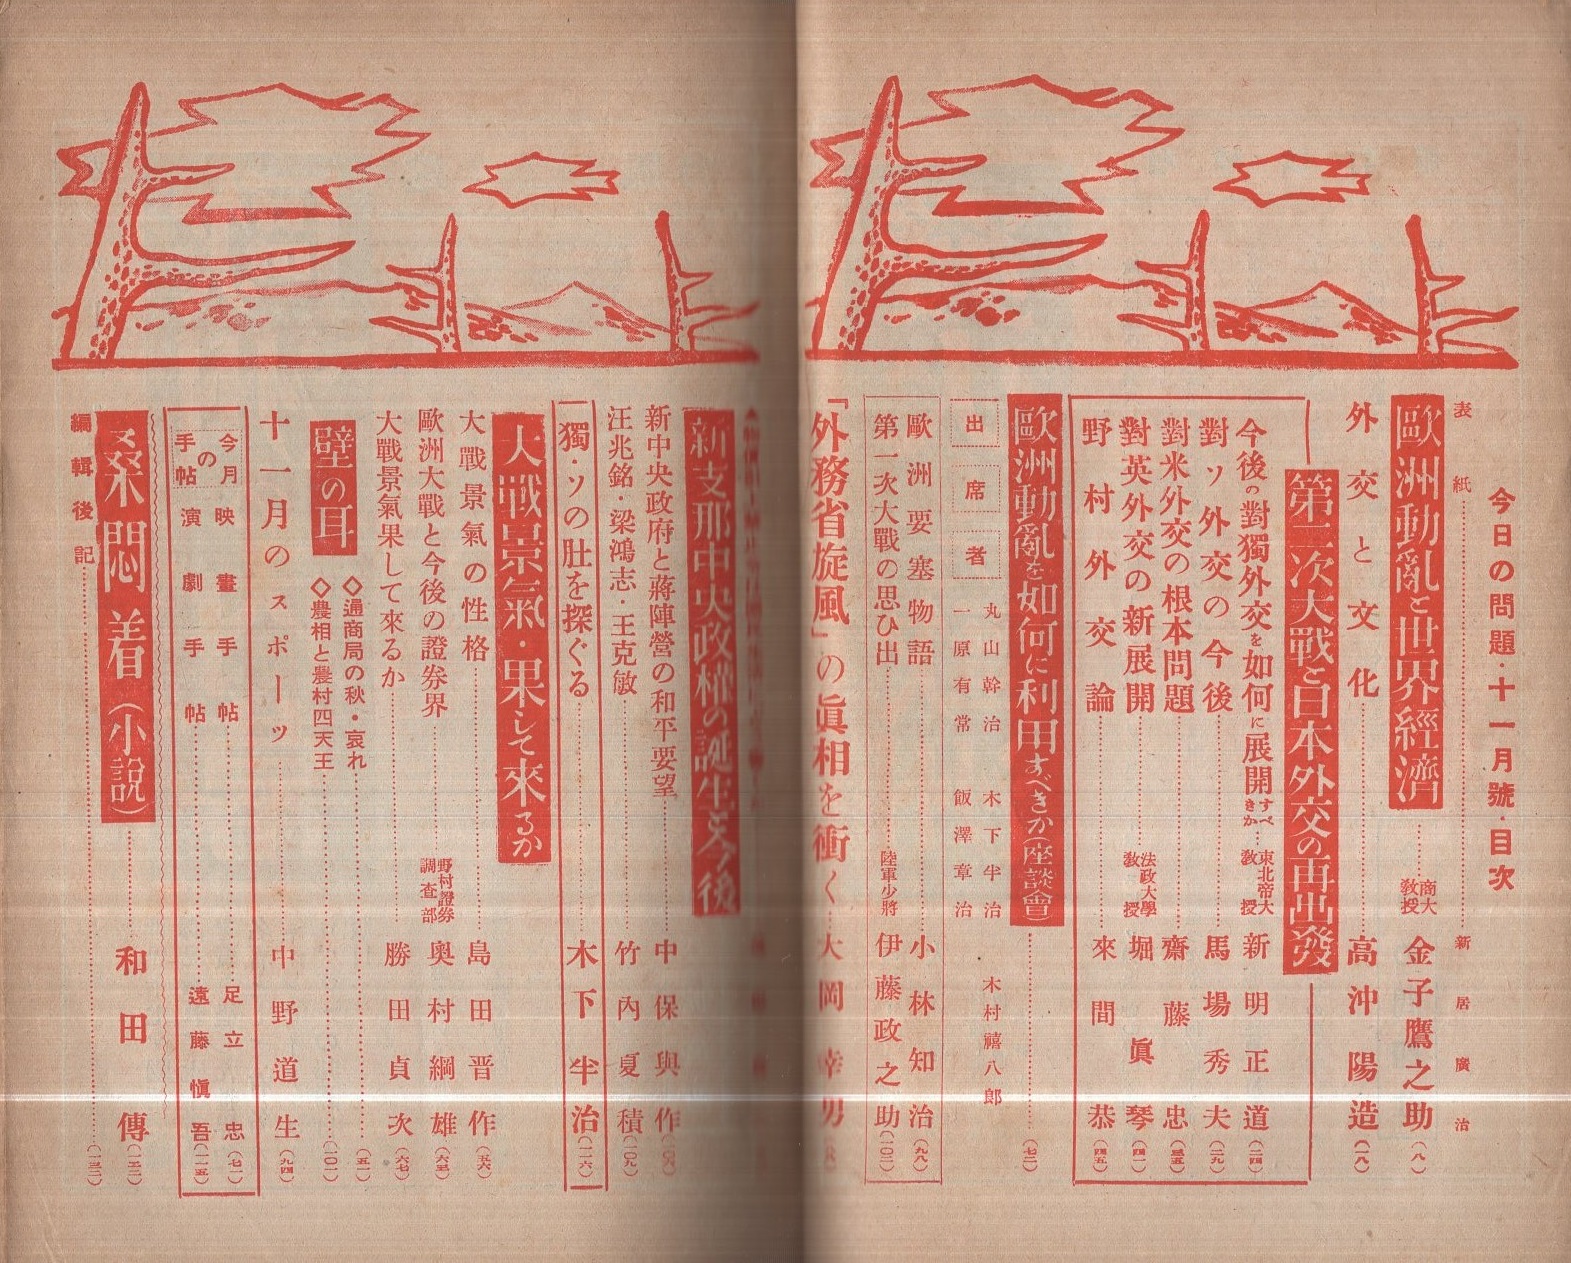 今日の問題・十一月號・目次
表紙……新居廣治
歐洲動亂と世界經濟……商大教授 金子鷹之助(八)
外交と文化……高沖陽造(一八)
第二次大戰と日本外交の再出發
今後の對獨外交を如何に展開すべきか…東北帝大教授 新明正道(二四)
對ソ外交の今後……馬場秀夫(二九)
對米外交の根本問題……齋藤忠(三五)
對英外交の新展開……法政大學教授 堀眞琴(四一)
野村外交論……來間恭(四五)
歐洲動亂を如何に利用すべきか(座談會)……(七二)
出席者
丸山幹治 木下半治 木村禧八郎
一原有常 飯澤章治
歐洲要塞物語……小林知治(九八)
第一次大戰の思ひ出……陸軍少將 伊藤政之助(一〇三)
「外務省旋風」の眞相を衝く…大岡幸男
新支那中央政權の誕生と今後
新中央政府と蔣陣營の和平要望……中保與作(一〇六)
汪兆銘・梁鴻志・王克敏……竹內夏積(一〇九)
獨・ソの肚を探ぐる……木下半治(一一六)
大戰景氣・果して來るか
大戰景氣の性格……島田晋作(五六)
歐洲大戰と今後の證券界……野村證券調查部 奧村綱雄(六三)
大戰景氣果して來るか……勝田貞次(六七)
壁の耳
◇通商局の秋・哀れ……(五一)
◇農相と農村四天王……(一〇一)
十一月のスポーツ……中野道生(九四)
今月の手帖
映畫手帖……足立忠(七一)
演劇手帖……遠藤愼吾(一一五)
桑悶着(小說)……和田傳(一二二)
編輯後記……(一三二)